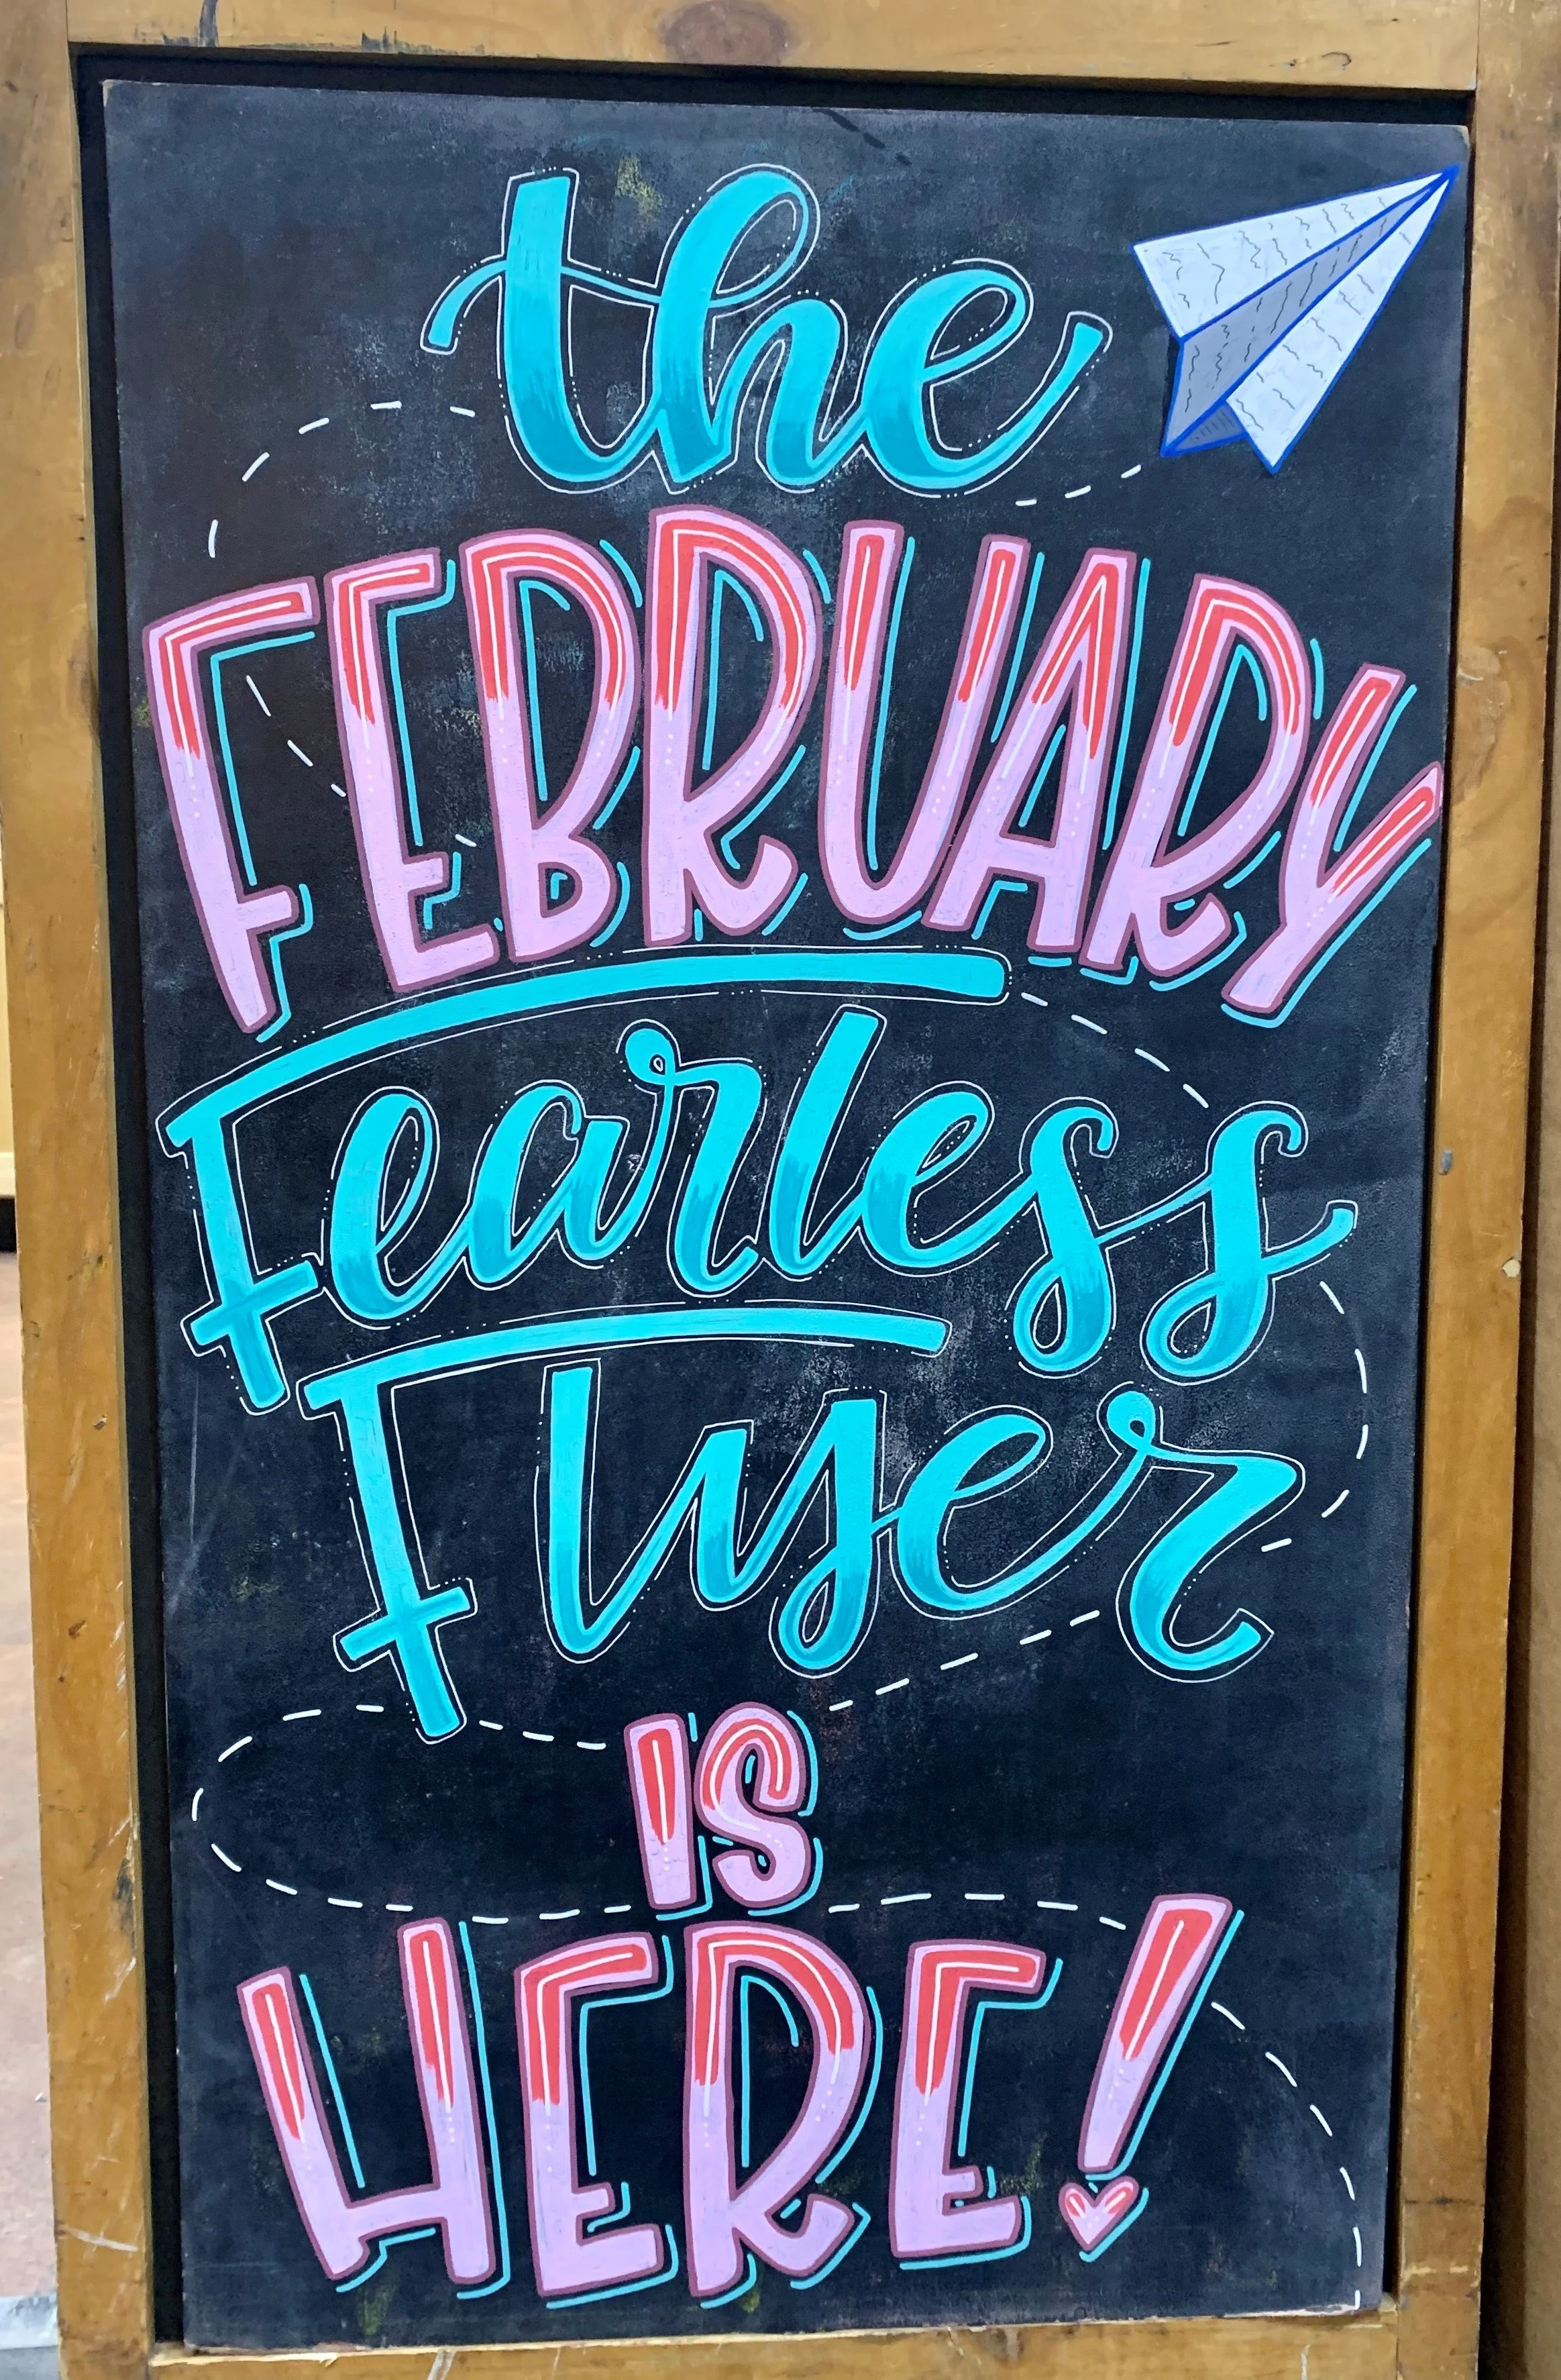 the
FEBRUARY
Fearless
Flyer
IS
HERE!